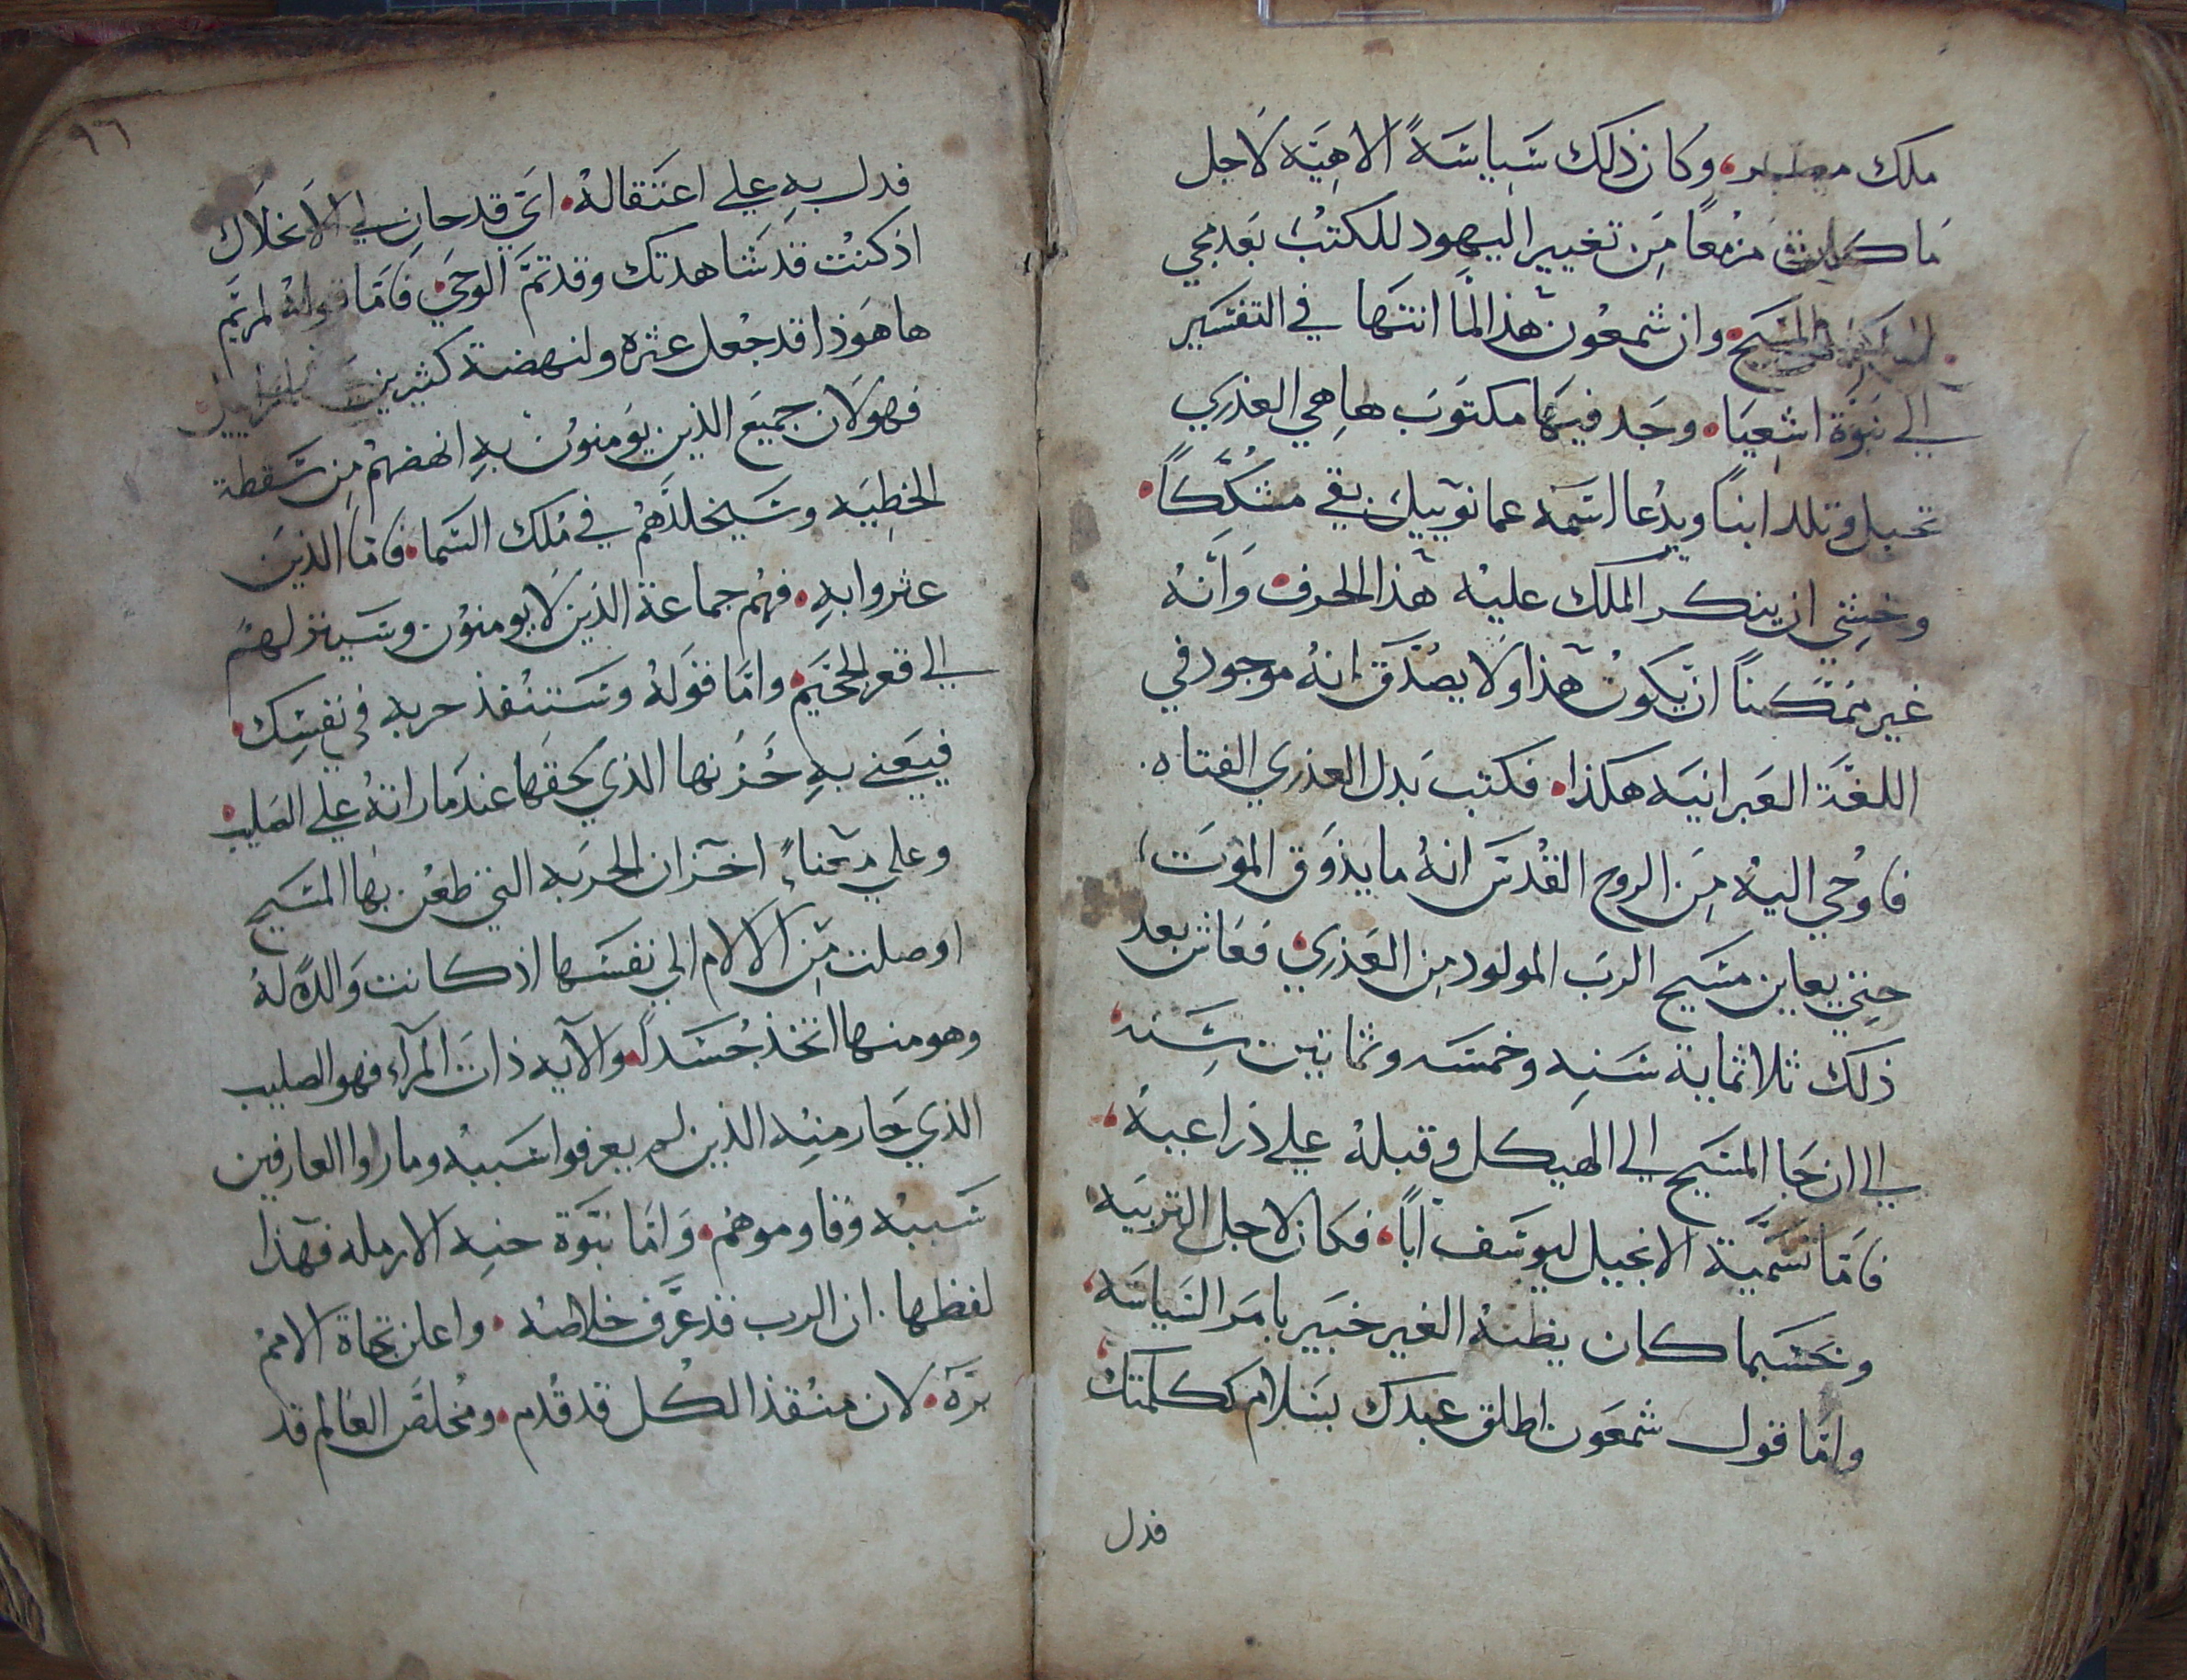 ملك مصر، وكان ذلك شياسَةً الاهيَه لاجل
مَا كان مَزمعًا مِن تغيير اليهود للكتبْ بَعد مجي
المسَيح• وان شمعُون هذا لمَّا انتهَا في التفسَير
الي نبَوَّة اشعيَا• وجَد فيهَا مكتوَبَ هَا هِي العَذري
تحبل وتلد ابنًا ويدُعا اسَمَه عمانوَييل بقي متشكِّكًا•
وخشِي ان ينكر الملك عليْه هَذا الحرف• وَانَّهُ
غير مُمَكنًا ان يَكونْ هَذا ولا يصُدَّق انهُ موجود في
اللغَّة العَبرانيَه هكذا• فكتب بَدل العذري الفتاه.
فاوُحي اليهُ مِنَ الروح القُدسَ انهُ ما يذوَق الموَت،
حتي يعاين مسَيح الربَ المولود مِن العَذري• فعَاش بعد
ذلك ثلاثماية سَنِه وخمسَه وثمانين سَِنه،
الي ان جَا المسَيح الي الهيكل وقبلهُ علي ذراعيهُ،
فامَّا تسَميَّة الانجيل ليوسَف ابًا• فكان لاجل التربيَه
وبحَسَبما كان يظنهُ الغير خبَير بامَر السَياسَه،
وامَّا قول شمعَون اطلق عبدك بسَلام ككلمتك،
فدل
٩٦
فدل بهِ علي اعتَقالهُ• انَي قد حان لي الانحلاَل
اذ كنْت قد شاهدتك وقد تمَّ الوحيَ• فامَا قولهُ لمريَم
ها هوَذا قد جُعل عثره ولنهضة كثيرين
فهو لان جميَع الذين يوَمنوُنْ بهِ انهضهُم مِن سَّقطة
الخطِيَه وسَيخلدَّهُم في مُلك السَما• فامَّا الذينَ
عثروا بهِ• فهُم جماعة الذين لا يومنوُن وسَينزلهُم
الي قعر الجحَيم• وامَّا قوَلهُ وسَتنفُذ حربه في نفسِك•
فيَعَني بهِ حُزنها الذي لحقهَا عندَما راتهُ علي الصَليب•
وعلي معَناءً اخَر ان الحربَه التي طعُن بها المسَيح
اوصلت مَن الالام الي نفسَها اذ كانت وَالدَّه لهُ
وهو منها اتخذ جُسَدًا• والآيه ذات المرَآء فهو الصليب
الذي حَار منِه الذين لم يعرفوا سَببهُ وماراوا العارفين
سَببهُ وقاوموهم• وَامَّا نبَّوَّة حنِه الارمله فهَذا
لفظها. ان الرب قد عَرَّف خلاصَه• واعلن نجاة الاممُ
برَّه• لان منُقذ الكُل قد قدُم• ومُخلصَ العَالم قد